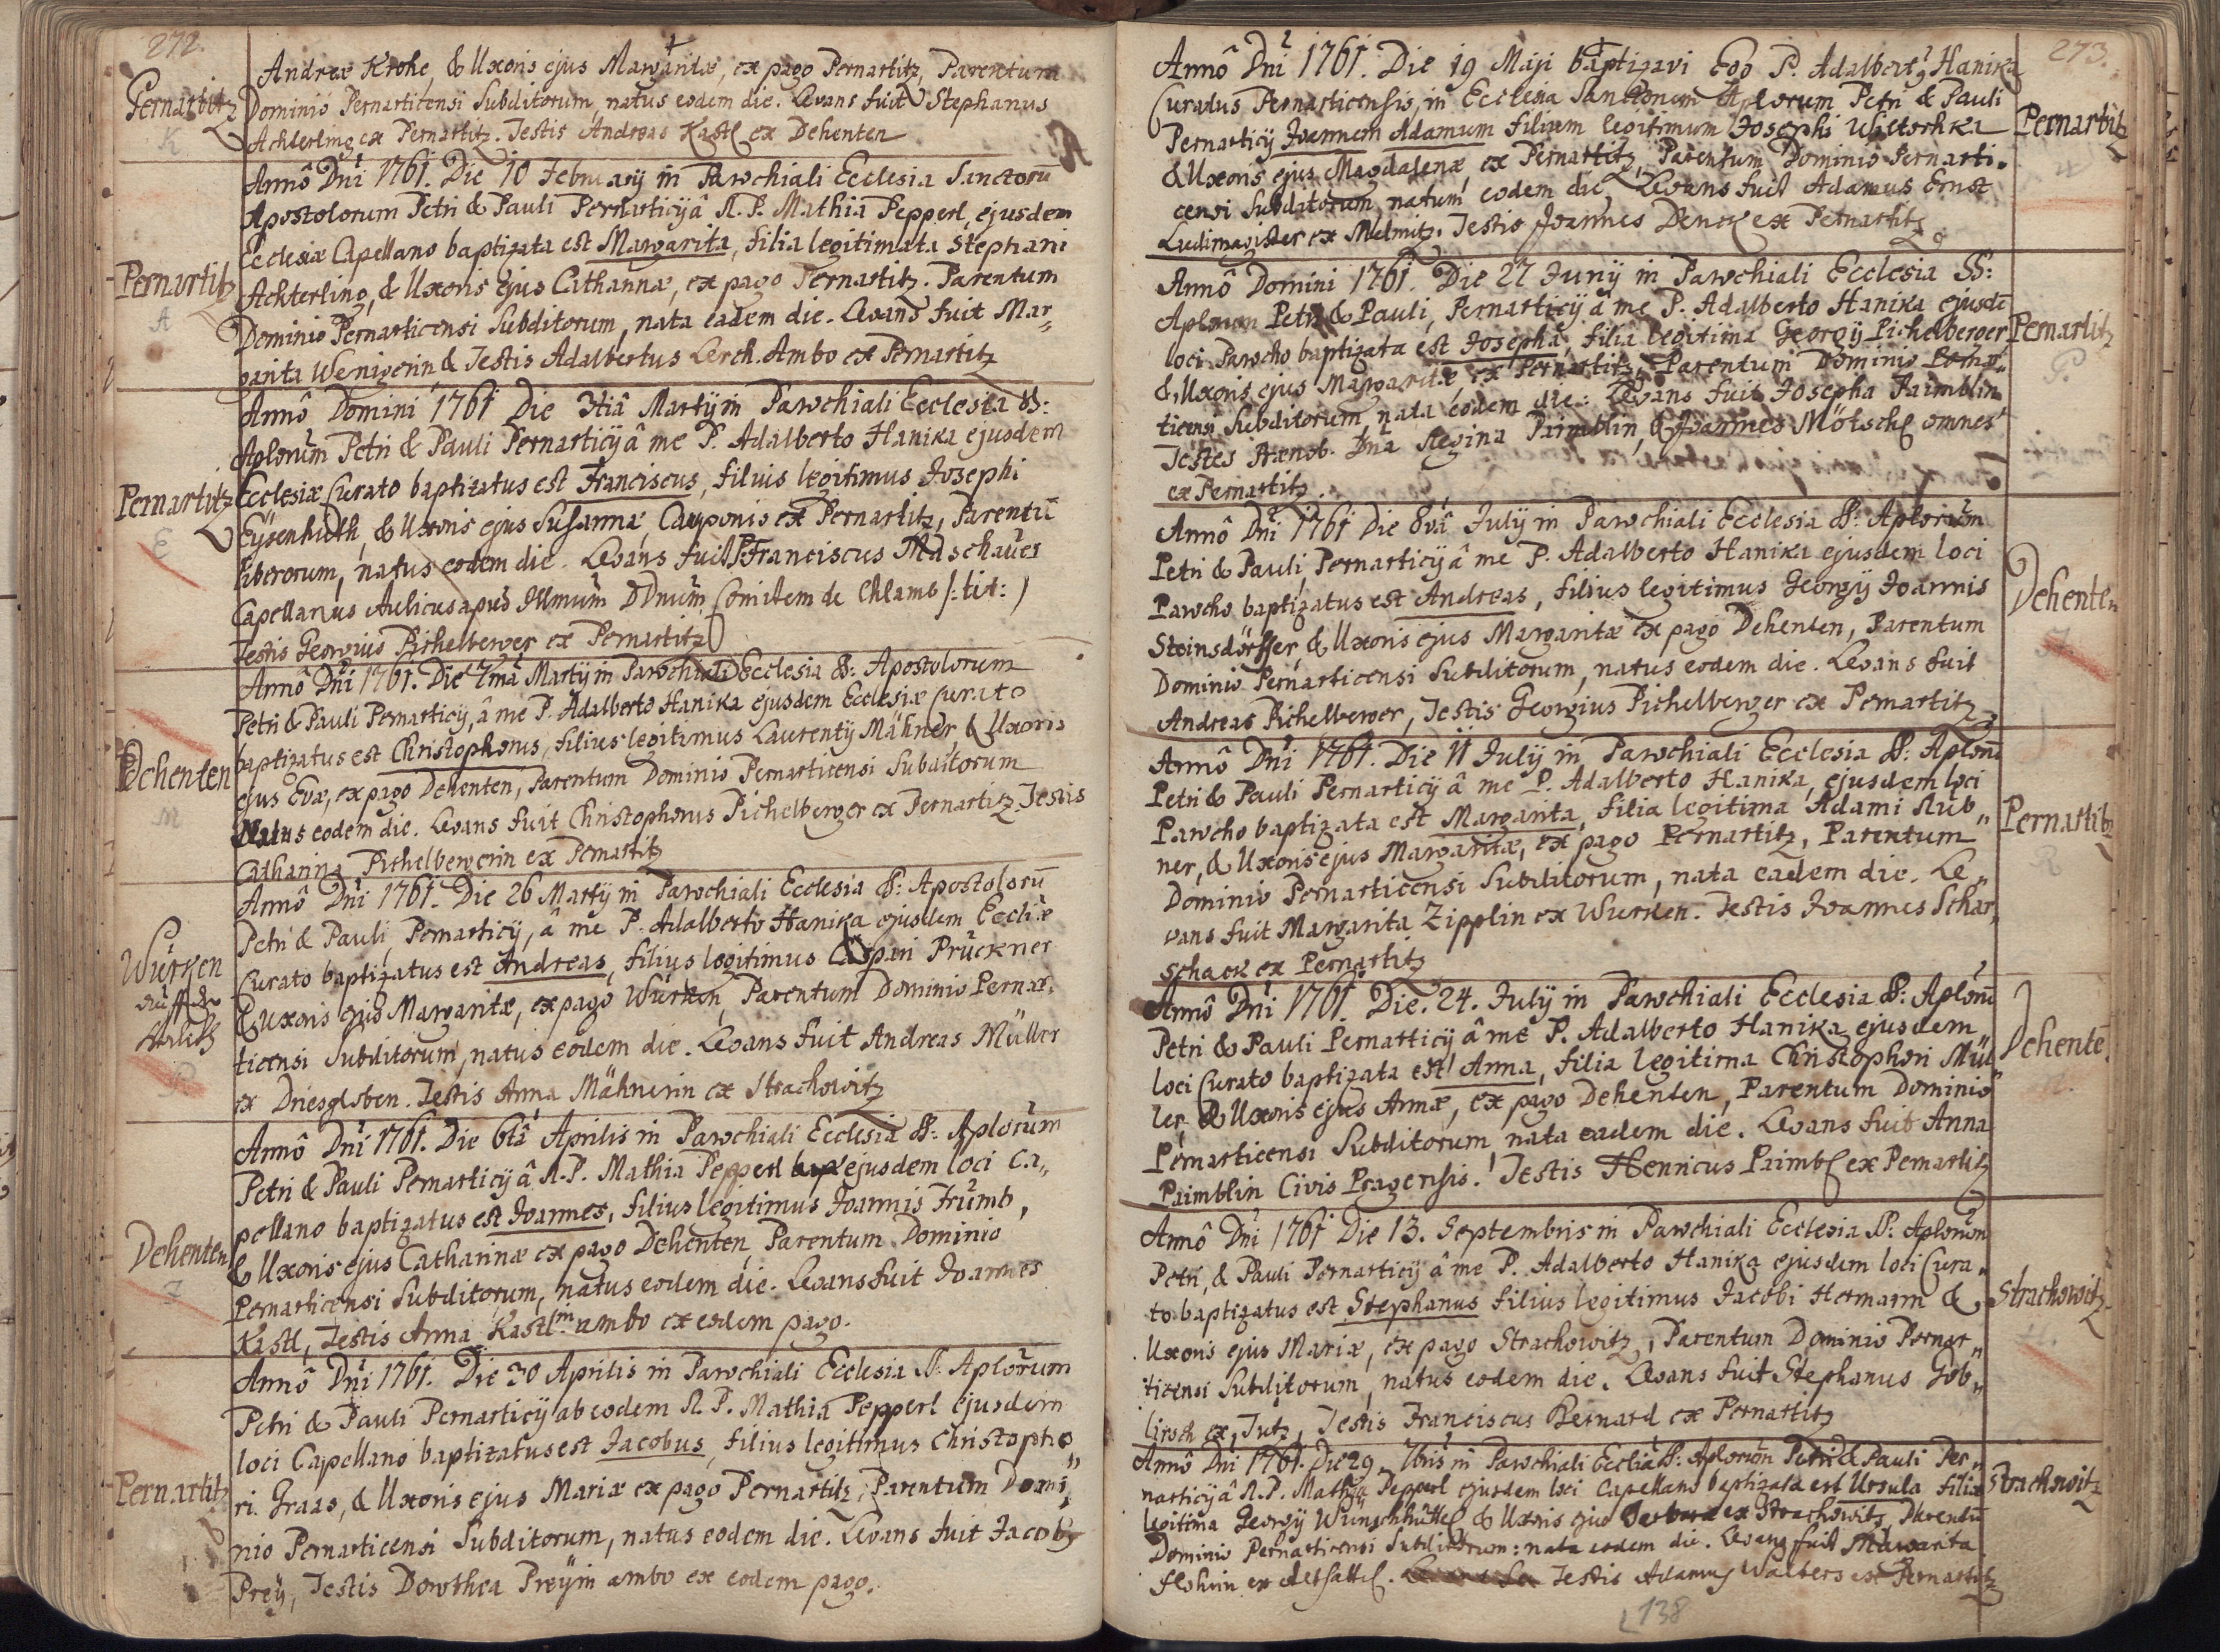 272.
Andreæ Krohe, & Uxoris ejus Margaritæ, ex pago Pernartitz, Parentum
Pernartitz
Dominio Pernarticensi Subditorum, natus eodem die. Levans fuit Stephanus
K
Achterling ex Pernartitz. Testis Andreas Kastl ex Dehenten
A
Annô Dni 1761. Die 10 February in Parochiali Ecclesia Sanctorū
Apostolorum Petri & Pauli Pernarticÿ â R. P. Mathia Pepperl, ejusdem
Ecclesiæ Capellano baptizata est Margarita, filia legitimata Stephani
Pernartitz
Achterling, & Uxoris ejus Cathannæ, ex pago Pernartitz. Parentum
A
Dominio Pernarticensi Subditorum, nata eadem die. Levans fuit Mar„
garita Wenigerin & Testis Adalbertus Lerch. Ambo ex Pernartitz
Annô Domini 1761 Die 3tiâ Martÿ in Parochiali Ecclesia SS:
Aplorum Petri & Pauli Pernarticÿ â me P. Adalberto Hanika ejusdem
Pernartitz
Ecclesiæ Curato baptizatus est Franciscus, filius legitimus Josephi
E
Eÿsenhuth, & Uxoris ejus Susannæ, Cauponis ex Pernartitz, Parentū
liberorum, natus eodem die. Levans fuit P. Franciscus Muschauer
Capellanus Aulicus apud Illmum DDnum Comitem de Chlamb /: tit: )
Testis Georgius Pichelberger ex Pernartitz
Annô Dni 1761. Die 7mâ Martÿ in Parochiali Ecclesia SS: Apostolorum
Petri & Pauli Pernarticÿ, â me P. Adalberto Hanika ejusdem Ecclesiæ Curato
baptizatus est Christophorus, filius legitimus Laurentÿ Mähner & Uxoris
Dehenten
ejus Evæ, ex pago Dehenten, Parentum Dominio Pernarticensi Subditorum
M
Natus eodem die. Levans fuit Christophorus Pichelberger ex Pernartitz. Testis
Catharina Pichelbergerin ex Pernartitz
Annô Dni 1761. Die 26 Martÿ in Parochiali Ecclesia SS: Apostolorū
Petri & Pauli Pernarticÿ, â me P. Adalberto Hanika ejusdem Eccliæ
Wurken
Curato baptizatus est Andreas, filius legitimus Caspari Prückner
& Uxoris ejus Margaritæ, ex pago Wurken, Parentum Dominio Pernar„
P
ticensi Subditorum, natus eodem die. Levans fuit Andreas Müller
ex Dniesgloben. Testis Anna Mähnerin ex Strachowitz
Annô Dni 1761. Die 6tâ Aprilis in Parochiali Ecclesia SS: Aplorum
Petri & Pauli Pernarticÿ â R. P. Mathia Pepperl ejusdem loci Ca„
pellano baptizatus est Joannes, filius legitimus Joannis Trumb,
Dehenten
& Uxoris ejus Catharinæ ex pago Dehenten, Parentum Dominio
Pernarticensi Subditorum, natus eodem die. Levans fuit Joannes
Kastl, Testis Anna Kastlin ambo ex eodem pago.
Annô Dni 1761. Die 30 Aprilis in Parochiali Ecclesia SS: Aplorum
Petri & Pauli Pernarticÿ ab eodem R. P. Mathia Pepperl ejusdem
loci Capellano baptizatus est Jacobus, filius legitimus Christopho„
Pernartitz
ri Graas, & Uxoris ejus Mariæ ex pago Pernartitz, Parentum Domi„
nio Pernarticensi Subditorum, natus eodem die. Levans fuit Jacobg
Preÿ, Testis Dorothea Preÿin ambo ex eodem pago.
273.
Annô Dni 1761. Die 19 Maji baptizavi Ego P. Adalbertg Hanika
Curatus Pernarticensis, in Ecclesia Sanctorum Aplorum Petri & Pauli
Pernartitz
Pernarticÿ Joannem Adamum filium legitimum Josephi Witschka
& Uxoris ejus Magdalenæ, ex Pernartitz, Parentum Dominio Pernarti„
censi Subditorum, natum eodem die, Levans fuit Adamus Ernst
Ludimagister ex Melmitz. Testis Joannes Denck ex Pernartitz
Annô Domini 1761. Die 27 Junÿ in Parochiali Ecclesia SS:
Aplorum Petri & Pauli, Pernarticÿ â me P. Adalberto Hanika ejusdē
Pernartitz
loci Parocho baptizata est Josepha, filia legitima Georgÿ Pichelberger
P.
& Uxoris ejus Margaritæ, ex Pernartitz, Parentum Dominio Pernar„
ticensi Subditorum, nata eodem die: Levans fuit Josepha Paimblin
Testes Prænob. Dna Regina Paimblin, & Joannes Mötschl omnes
ex Pernartitz.
Annô Dni 1761 Die 8vâ Julÿ in Parochiali Ecclesia SS: Aplorum
Petri & Pauli, Pernarticÿ â me P. Adalberto Hanika ejusdem loci
Dehenten
Parocho baptizatus est Andreas, filius legitimus Georgÿ Joannis
Steinsdörffer, & Uxoris ejus Margaritæ ex pago Dehenten, Parentum
Dominio Pernarticensi Subditorum, natus eodem die. Levans fuit
Andreas Pichelberger, Testis Georgius Pichelberger ex Pernartitz
Annô Dni 1761. Die 11 Julÿ in Parochiali Ecclesia SS: Aplorū
Petri & Pauli Pernarticÿ â me P. Adalberto Hanika, ejusdem loci
Pernartitz
Parocho baptizata est Margarita, filia legitima Adami Rub„
R
ner, & Uxoris ejus Margaritæ, ex pago Pernartitz, Parentum
Dominio Pernarticensi Subditorum, nata eadem die. Le„
vans fuit Margarita Zipplin ex Wurken. Testis Joannes Schar„
schack ex Pernartitz
Annô Dni 1761. Die. 24. Julÿ in Parochiali Ecclesia SS: Aplorū
Petri & Pauli Pernarticÿ â me P. Adalberto Hanika ejusdem
Dehentē
loci Curato baptizata est Anna, filia legitima Christophori Mül„
ler, & Uxoris ejus Annæ, ex pago Dehenten, Parentum Dominio
Pernarticensi Subditorum, nata eadem die. Levans fuit Anna
Paimblin Civis Pragensis. Testis Henricus Paimbl ex Pernartitz
Annô Dni 1761 Die 13. Septembris in Parochiali Ecclesia SS: Aplorum
Petri, & Pauli Pernarticÿ â me P. Adalberto Hanika ejusdem loci Cura„
Strachowitz
to baptizatus est Stephanus filius legitimus Jacobi Hermann &
Uxoris ejus Mariæ, ex pago Strachowitz, Parentum Dominio Pernar„
ticensi Subditorum, natus eodem die. Levans fuit Stephanus Gob„
lirsch ex Tutz, Testis Franciscus Bernard ex Pernartitz
Annô Dni 1761. Die 29. 7bris in Parochiali Ecclia SS: Aplorum Petri & Pauli Per„
Strachowitz
narticÿ â R. P. Mathia Pepperl ejusdem loci Capellano baptizata est Ursula filia
legitima Georgÿ Wünschhüttl & Uxoris ejus Barbaræ ex Strachowitz, Parentū
Dominio Pernarticensi Subditorum: nata eodem die. Levans fuit Margarita
Testis Adamus Walbers ex Pernartitz
138